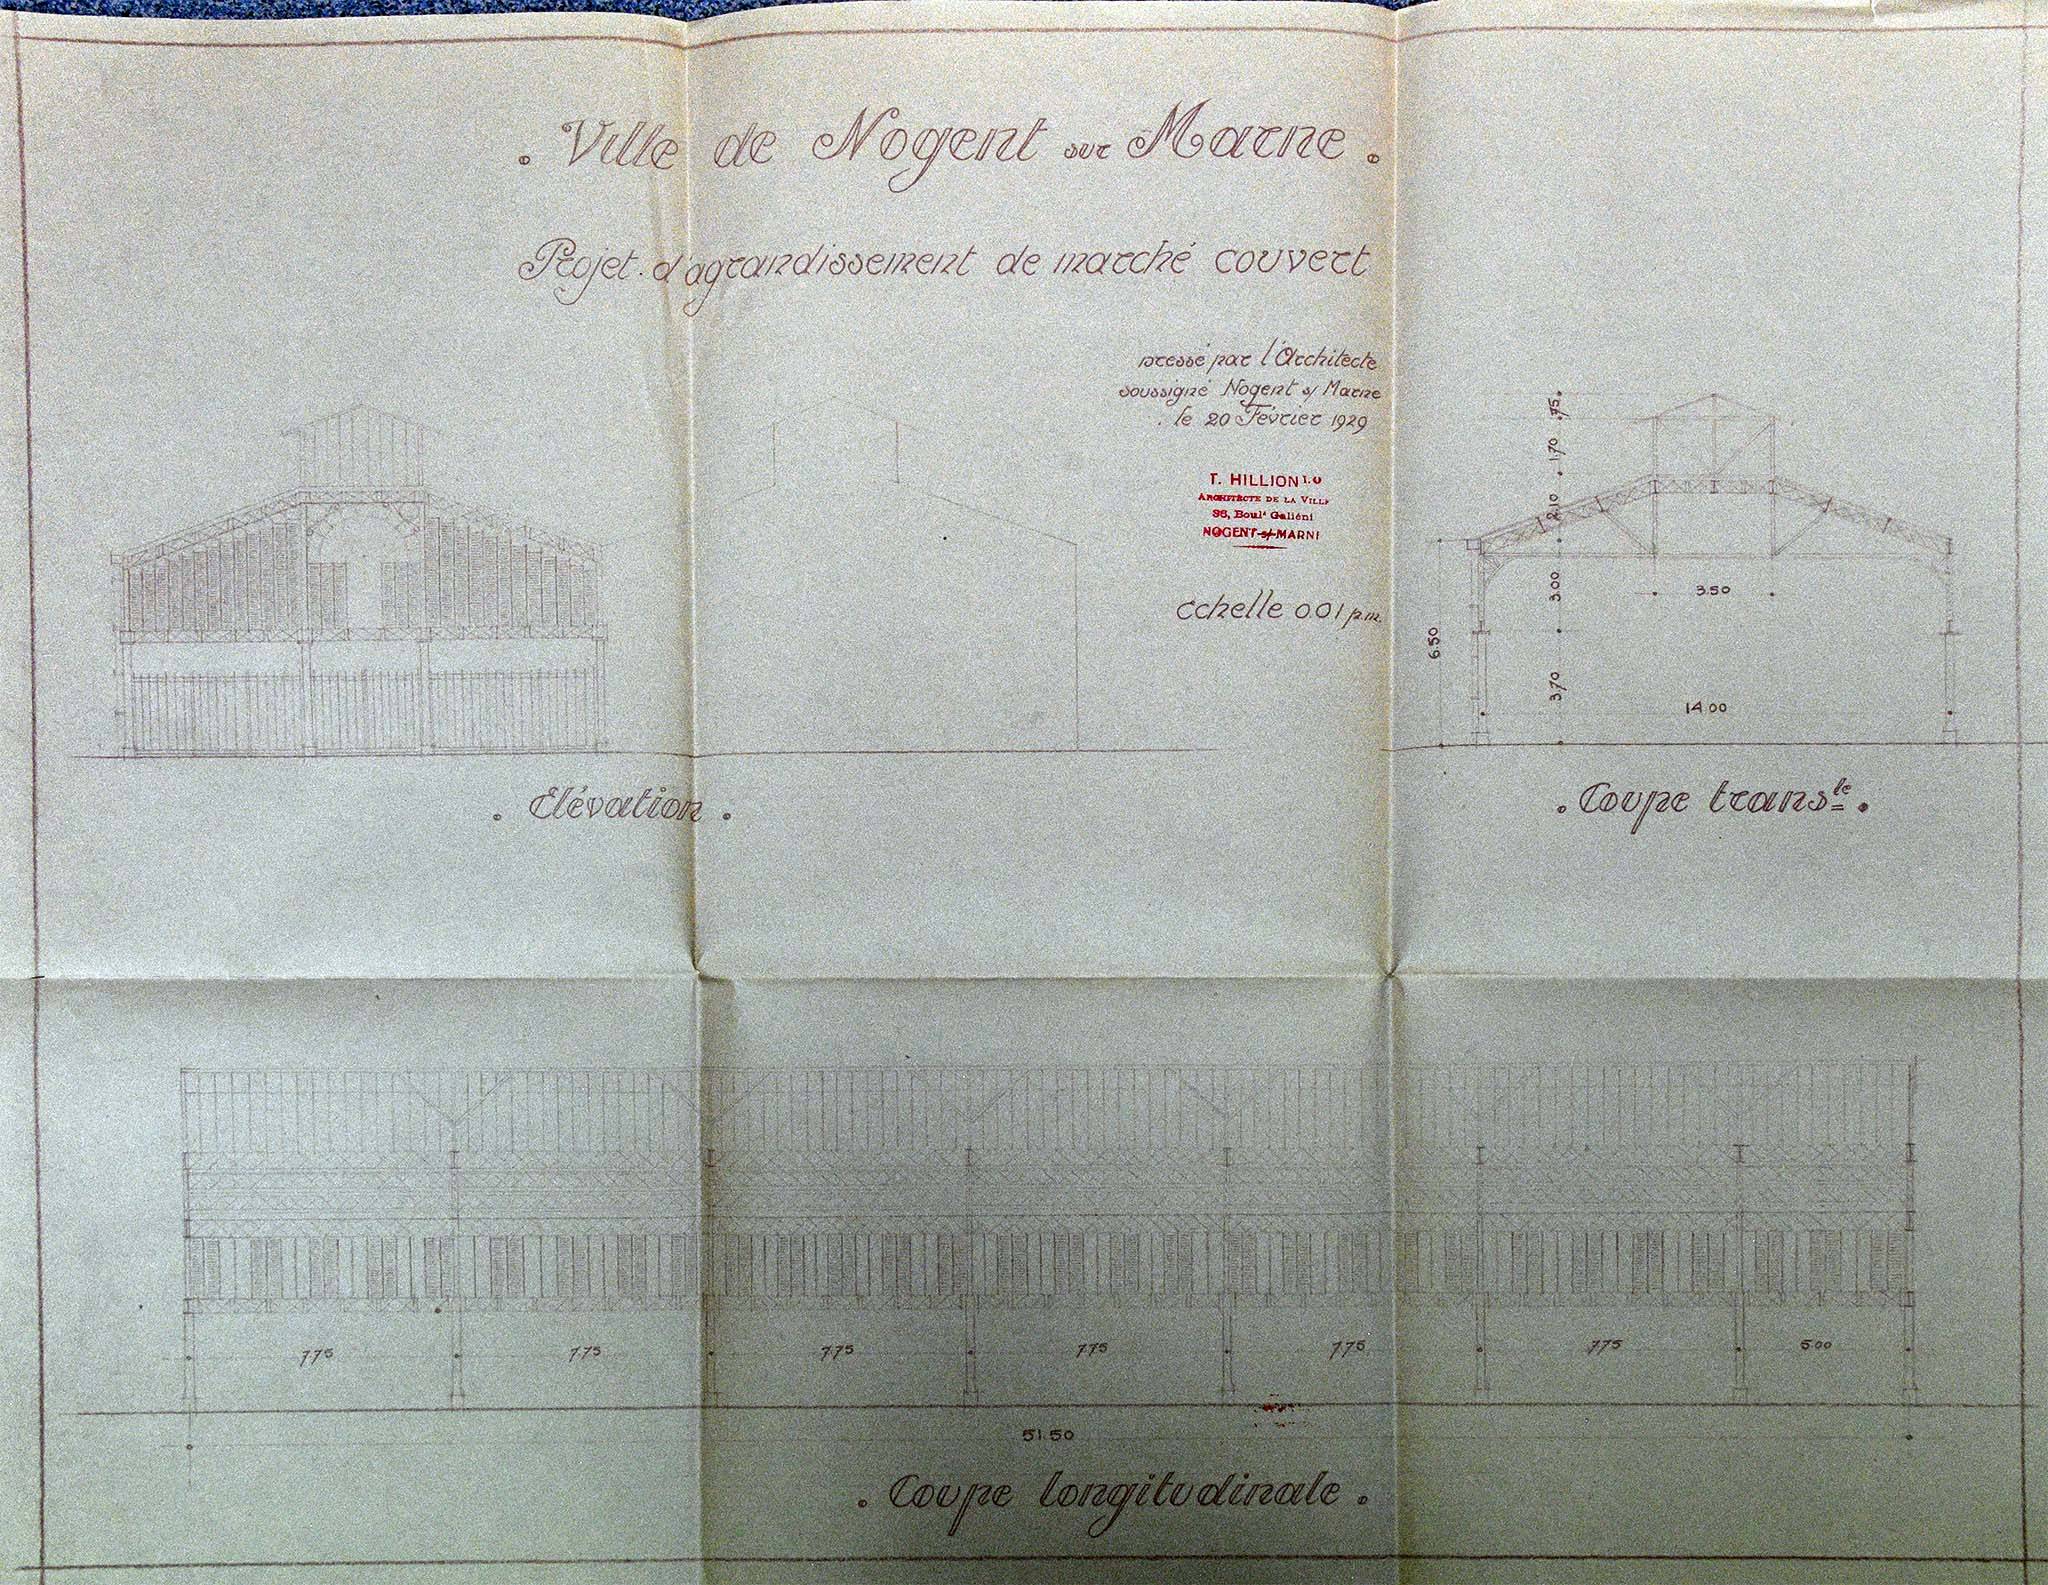 . Ville de Nogent sur Marne .
Projet d'agrandissement de marché couvert
Dressé par l'Architecte
soussigné Nogent s/ Marne
. le 20 Février 1929
T. HILLION I.O
ARCHITECTE DE LA VILLE
98, Boulᵈ Galiéni
NOGENT-s/-MARNE
échelle 0.01 p.m.
.75
1.70
2.10
3.00
3.50
6.50
3.70
14.00
. Elévation .
. Coupe transle .
7.75 7.75 7.75 7.75 7.75 7.75 5.00
51.50
. Coupe longitudinale .